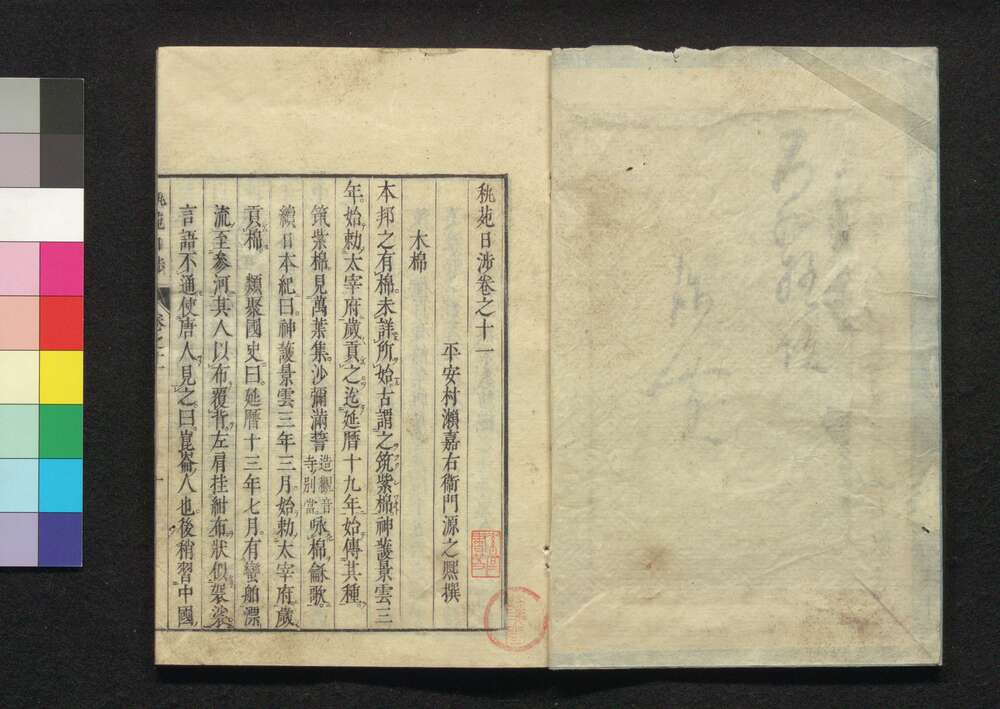 秇苑日涉卷之十一
平安村瀨嘉右衞門源之熙撰
木棉
本邦之有棉未詳所始古謂之筑紫棉神護景雲三
年始勅太宰府歲貢之迄延曆十九年始傳其種
筑紫棉見萬葉集沙彌滿誓造觀音寺別當咏棉龢歌
續日本紀曰神護景雲三年三月始勅太宰府歲
貢棉 類聚國史曰延曆十三年七月有蠻舶漂
流至參河其人以布覆背左肩挂紺布狀似袈裟
言語不通使唐人見之曰崑崙人也後稍習中國